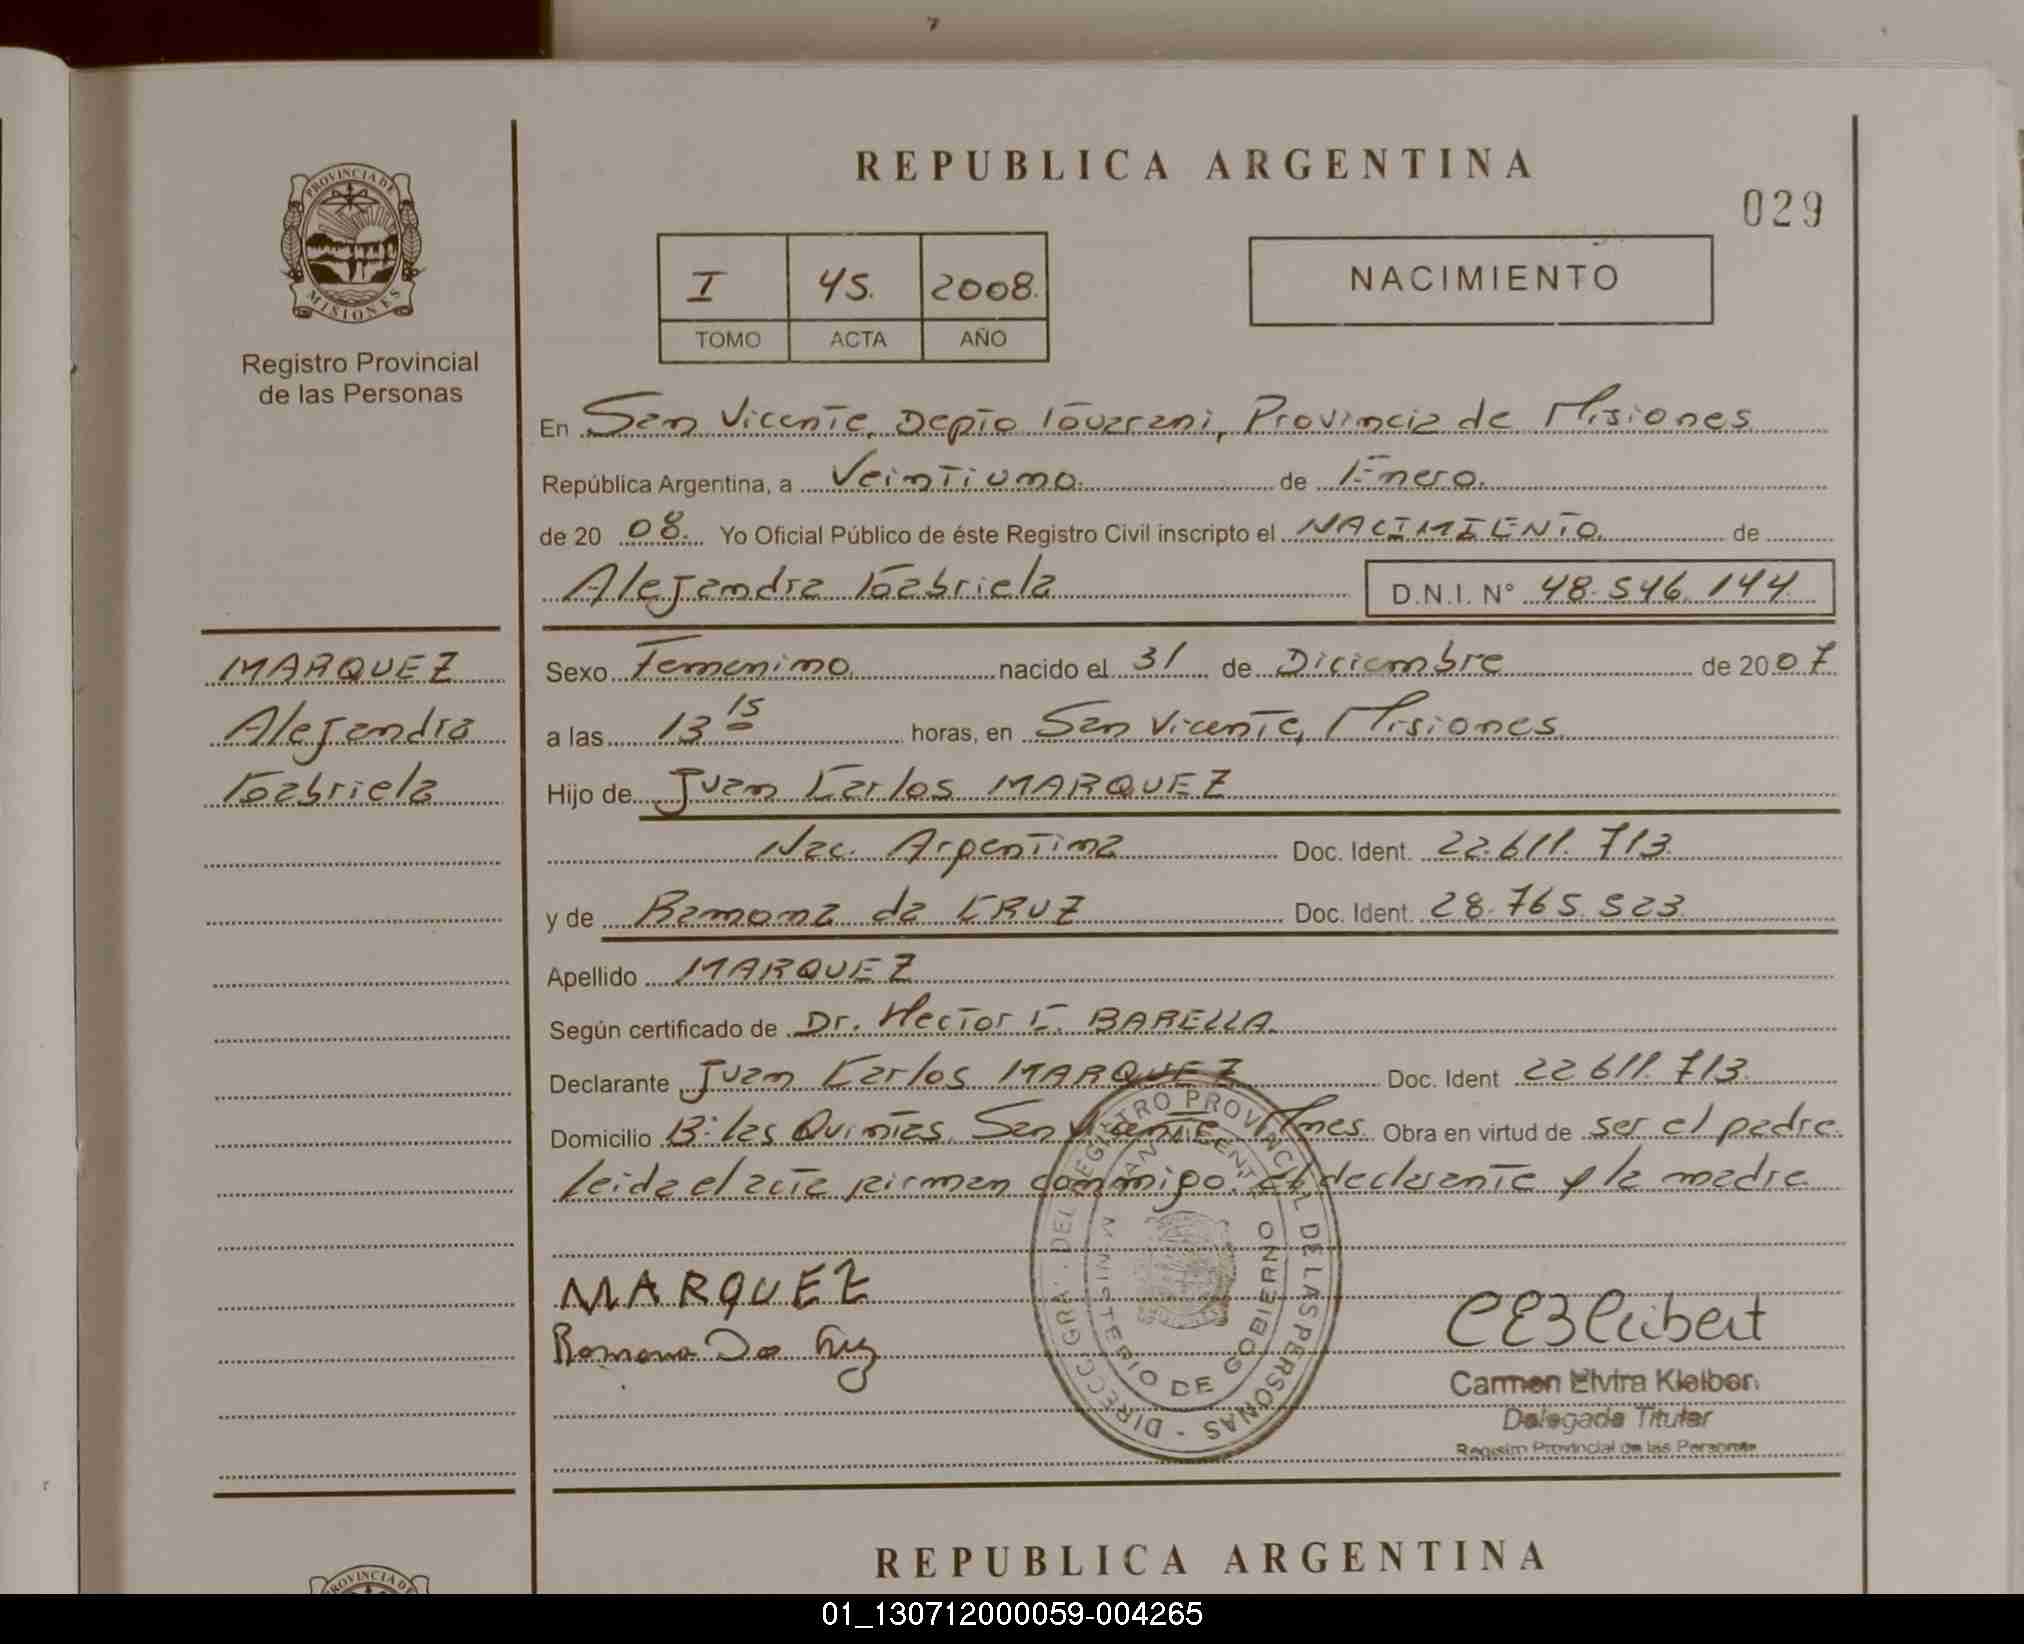 REPUBLICA ARGENTINA
029
PROVINCIA DE
MISIONES
Registro Provincial
de las Personas
I 45. 2008.
TOMO ACTA AÑO
NACIMIENTO
En San Vicente, Depto Guarani, Provincia de Misiones
República Argentina, a Veintiuno. de Enero.
de 20 08. Yo Oficial Público de éste Registro Civil inscripto el NACIMIENTO. de
Alejandra Gabriela D.N.I. N° 48.546.144
MARQUEZ
Alejandra
Gabriela
Sexo Femenino nacido el 31 de Diciembre de 20 07
a las 13 15 horas, en San Vicente, Misiones
Hijo de Juan Carlos MARQUEZ
Nac. Argentina Doc. Ident. 22.611.713
y de Ramona da CRUZ Doc. Ident. 28.765.523
Apellido MARQUEZ
Según certificado de Dr. Hector C. BARELLA
Declarante Juan Carlos MARQUEZ Doc. Ident 22 611.713
Domicilio B: las Quintas, San Vicente, Mnes. Obra en virtud de ser el padre.
leida el acta firman conmigo: el declarante y la madre
DIRECC. GRAL. DEL REGISTRO PROVINCIAL DE LAS PERSONAS -
MINISTERIO DE GOBIERNO
MARQUEZ
Ramona Da Cruz
CEKleibert
Carmen Elvira Kleiber
Delegada Titular
Registro Provincial de las Personas
REPUBLICA ARGENTINA
PROVINCIA D
01_130712000059-004265